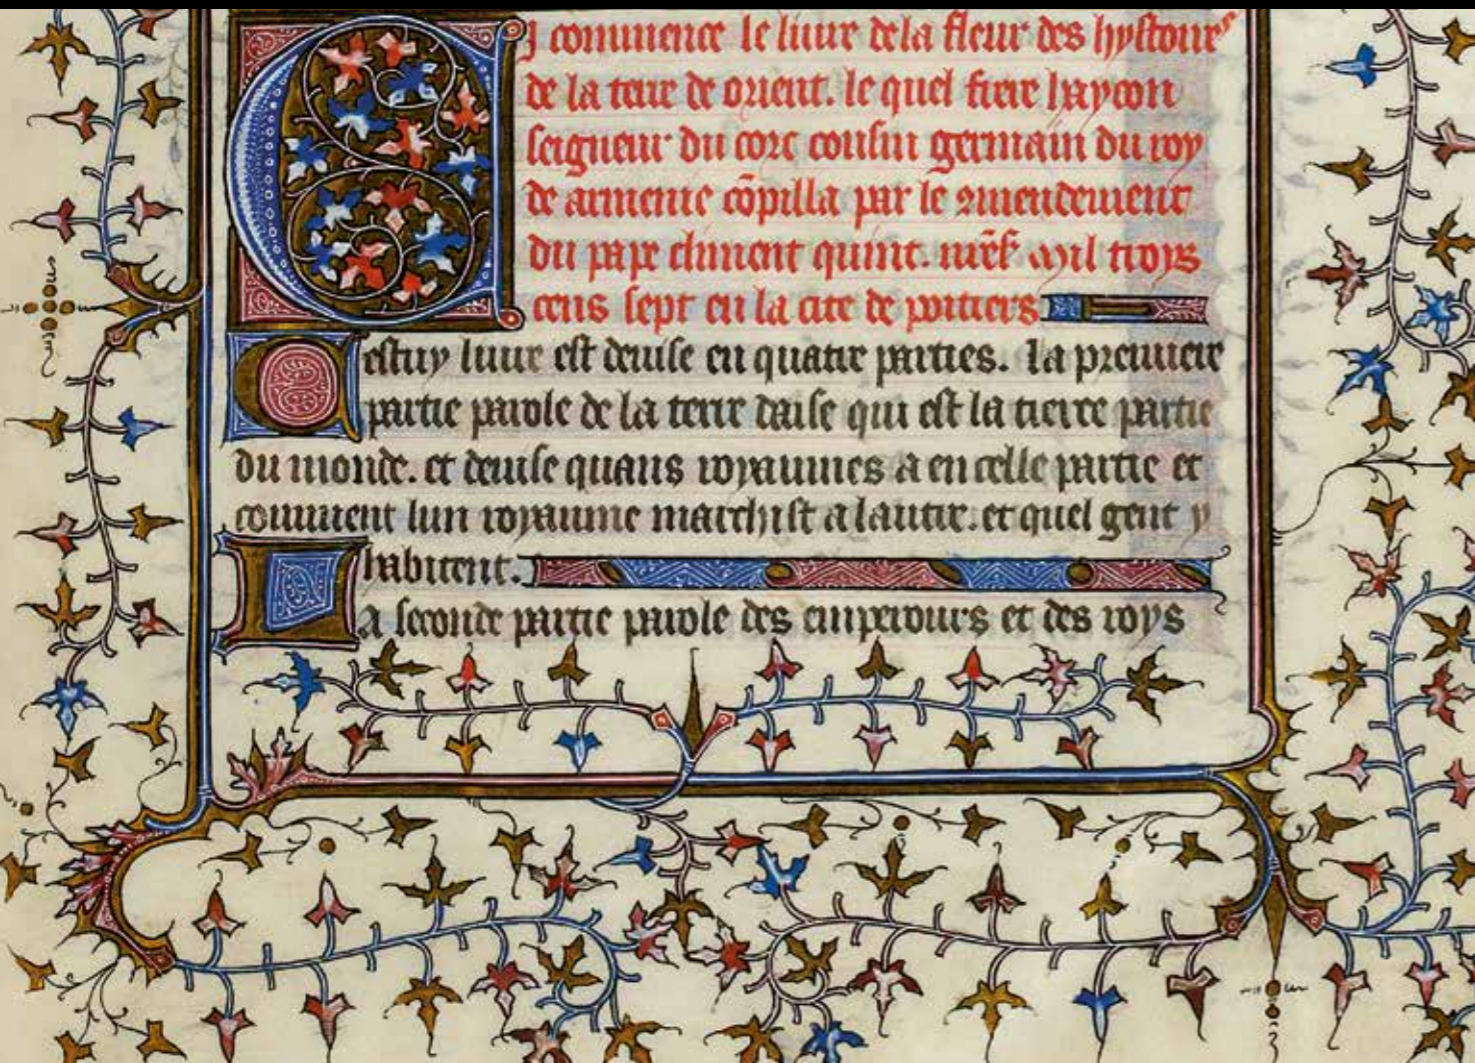 CI commence le liure dela fleur des hystoires
de la terre de orient. le quel frere haycon
seigneur du corc cousin germain du roy
de armenie cõpilla par le
du pape climent quint. mil troys
cens sept en la cite de poitiers
Cestuy liure est deuise en quatre parties. la premiere
partie parole de la terre daise qui est la tierce partie
du monde. et deuise quans royaumes a en celle partie et
comment lun royaume marchist a lautre. et quel gent y
habitent.
La seconde partie parole des emperours et des roys